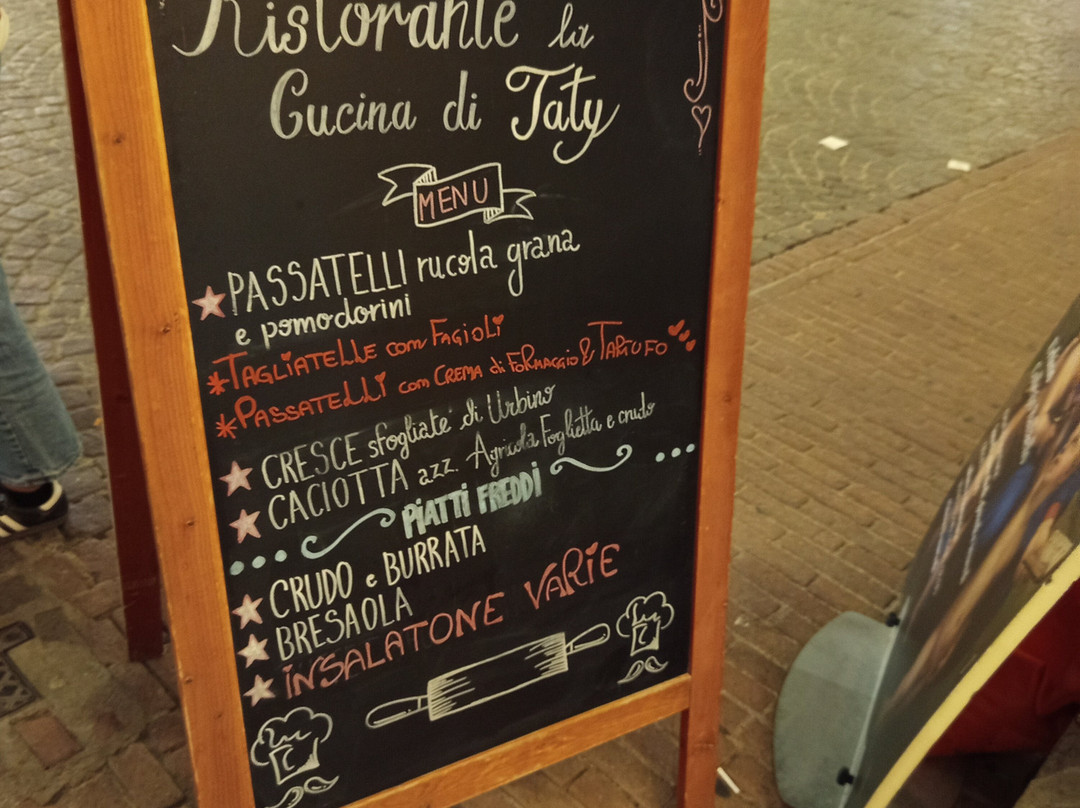 Ristorante la
Cucina di Taty
MENU
PASSATELLI rucola grana
e pomodorini
TAGLIATELLE con FAGIOLI
PASSATELLI con CREMA di FORMAGGIO & TARTUFO
CRESCE sfogliate di Urbino
CACIOTTA azz. Agricola Foglietta e crudo
PIATTI FREDDI
CRUDO e BURRATA
BRESAOLA
INSALATONE VARIE
C
C